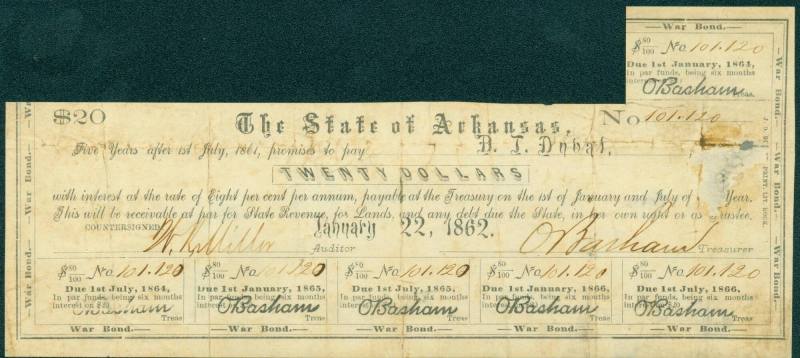 War Bond.
$ 80/100 No 101.120
Due 1st January, 1864,
In par funds, being six months
interest
OBasham
Treas
War Bond.
$20
The State of Arkansas,
No 101.120
Five Years after 1st July, 1861, promises to pay B. T. Duval,
TWENTY DOLLARS
with interest at the rate of Eight per cent per annum, payable at the Treasury on the 1st of January and July of Year.
This will be receivable at par for State Revenue, for Lands, and any debt due the State, in own right or as trustee.
COUNTERSIGNED January 22, 1862.
W. R. Miller Auditor
OBasham Treasurer
War Bond.
War Bond.
War Bond.
$ 80/100 No 101.120
Due 1st July, 1864,
In par funds, being six months
interest on $20
OBasham
Treas
$ 80/100 No 101.120
Due 1st January, 1865,
In par funds, being six months
interest on $20
OBasham
Treas
$ 80/100 No 101.120
Due 1st July, 1865,
In par funds, being six months
interest on $20
OBasham
Treas
$ 80/100 No 101.120
Due 1st January, 1866,
In par funds, being six months
interest on $20
OBasham
Treas
$ 80/100 No 101.120
Due 1st July, 1866,
In par funds, being six months
interest on $20
OBasham
Treas
War Bond.
War Bond.
War Bond.
War Bond.
War Bond.